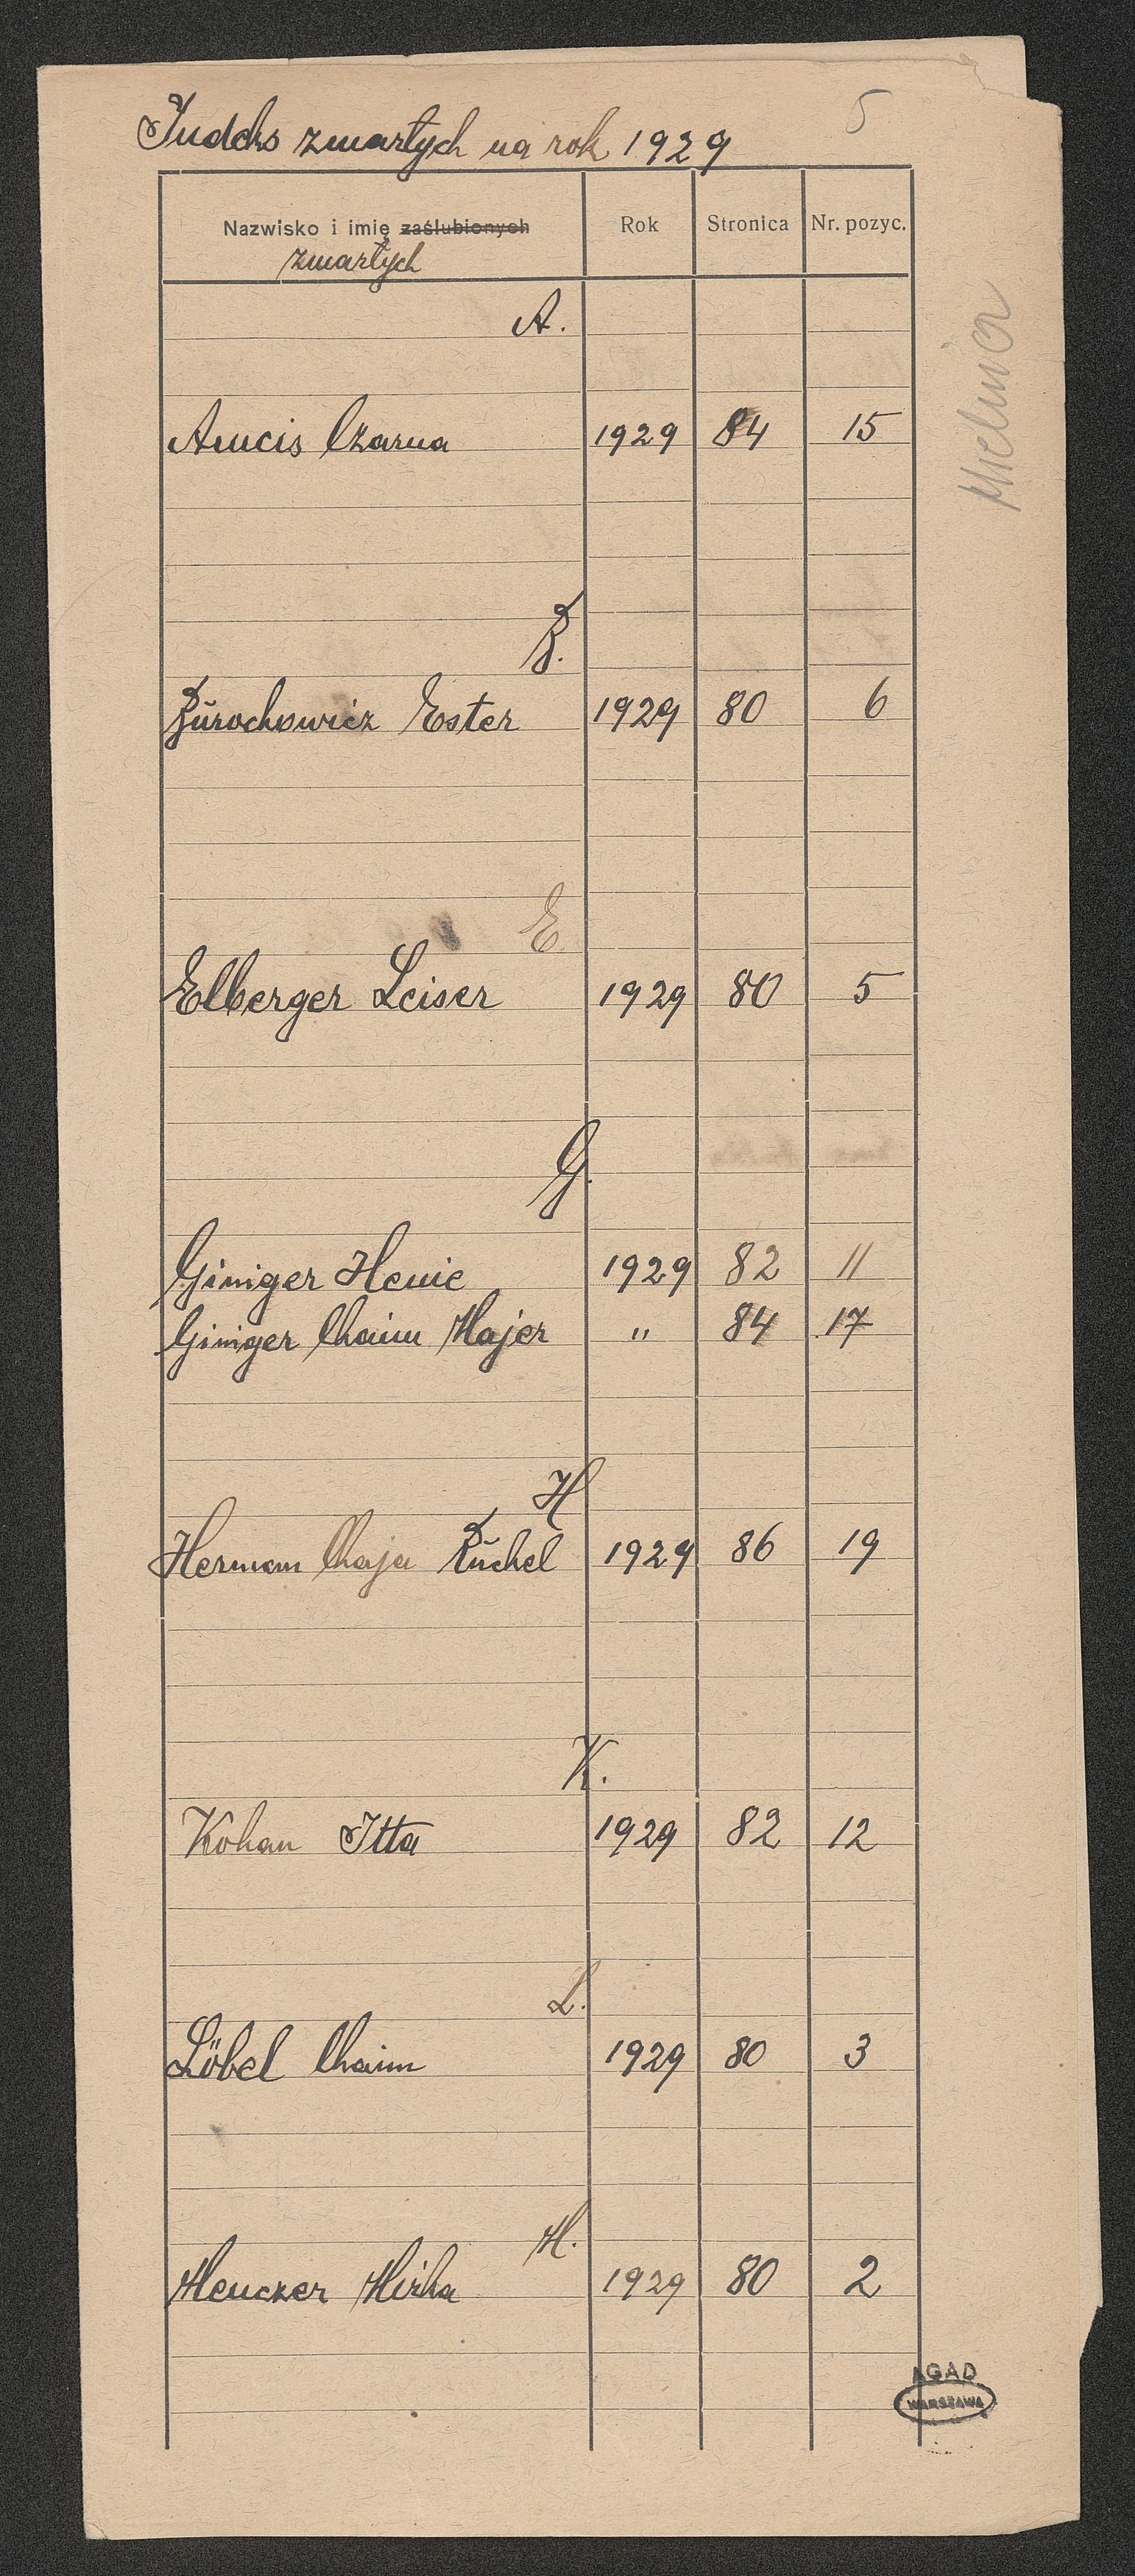 5
Indeks zmarłych na rok 1929
Nazwisko i imię zaślubionych Rok Stronica Nr. pozyc.
zmarłych
Mielnica
A.
Amcis Czarna 1929 84 15
B.
Burochowicz Ester 1929 80 6
E
Elberger Leiser 1929 80 5
G.
Giniger Henie 1929 82 11
Giniger Chaim Majer " 84 17
H
Herman Chaja Ruchel 1929 86 19
K.
Kohan Itta 1929 82 12
L.
Löbel Chaim 1929 80 3
M.
Menczer Mirha 1929 80 2
AGAD
WARSZAWA